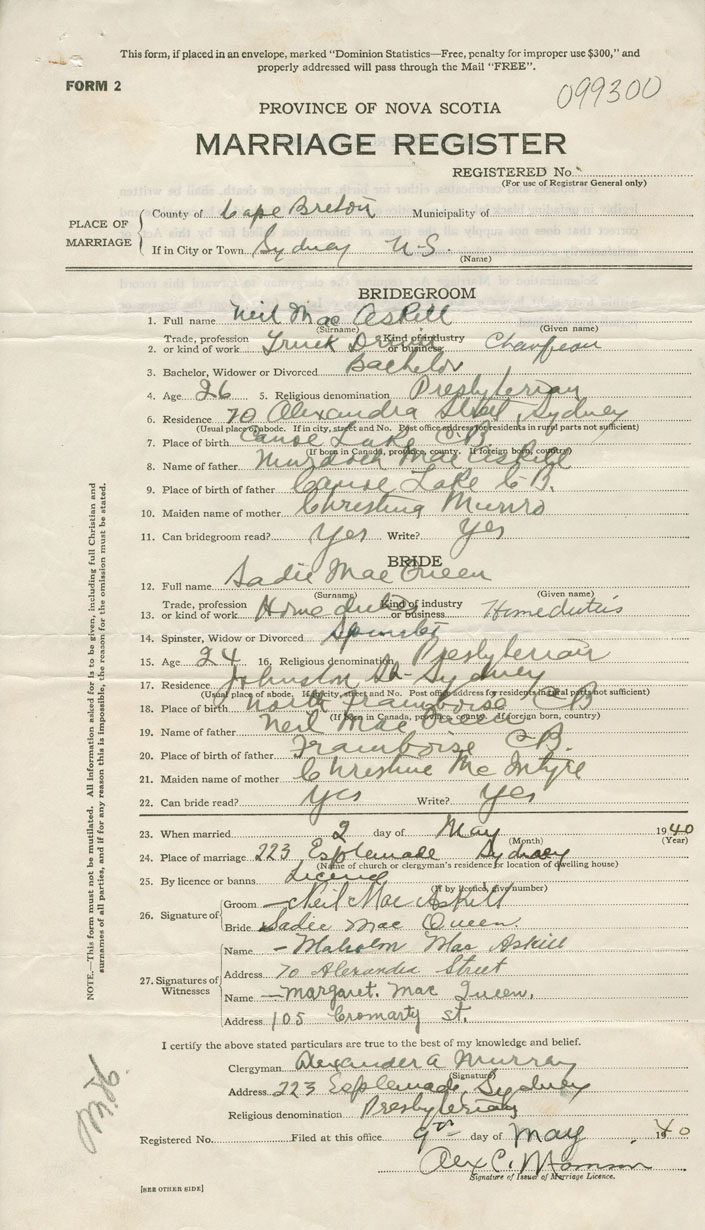 This form, if placed in an envelope, marked "Dominion Statistics—Free, penalty for improper use $300," and
properly addressed will pass through the Mail "FREE".
FORM 2
099300
PROVINCE OF NOVA SCOTIA
MARRIAGE REGISTER
REGISTERED No.
(For use of Registrar General only)
PLACE OF MARRIAGE
County of Cape Breton Municipality of
If in City or Town Sydney N.S.
(Name)
BRIDEGROOM
1. Full name Neil Mac Askill
(Surname) (Given name)
2. Trade, profession or kind of work Truck Driver Kind of industry or business Chauffeau
3. Bachelor, Widower or Divorced Bachelor
4. Age 26 5. Religious denomination Presbyterian
6. Residence 70 Alexandra Street, Sydney
(Usual place of abode. If in city, street and No. Post office address for residents in rural parts not sufficient)
7. Place of birth Canoe Lake C.B
(If born in Canada, province, county. If foreign born, country)
8. Name of father Murdoch Mac Askill
9. Place of birth of father Canoe Lake C B.
10. Maiden name of mother Christina Munro
11. Can bridegroom read? Yes Write? Yes
BRIDE
12. Full name Sadie Mac Queen
(Surname) (Given name)
13. Trade, profession or kind of work Home duties Kind of industry or business Home duties
14. Spinster, Widow or Divorced Spinster
15. Age 24 16. Religious denomination Presbyterian
17. Residence Johnston St- Sydney
(Usual place of abode. If in city, street and No. Post office address for residents in rural parts not sufficient)
18. Place of birth North Framboise C B
(If born in Canada, province, county. If foreign born, country)
19. Name of father Neil Mac Queen
20. Place of birth of father Framboise C B.
21. Maiden name of mother Christine Mc Intyre
22. Can bride read? Yes Write? Yes
23. When married 2 day of May 1940
(Month) (Year)
24. Place of marriage 223 Esplanade Sydney
(Name of church or clergyman's residence or location of dwelling house)
25. By licence or banns Licence
(If by licence, give number)
26. Signature of
Groom —Neil Mac Askill
Bride Sadie Mac Queen.
27. Signatures of Witnesses
Name —Malcolm Mac Askill
Address 70 Alexandra Street
Name —Margaret. Mac Queen.
Address 105 Cromarty st.
I certify the above stated particulars are true to the best of my knowledge and belief.
Clergyman Alexander A Murray
(Signature)
Address 223 Esplanade, Sydney
Religious denomination Presbyterian
Registered No. Filed at this office 9th day of May 1940
Signature of Issuer of Marriage Licence.
[SEE OTHER SIDE]
NOTE.—This form must not be mutilated. All information asked for is to be given, including full Christian and
surnames of all parties, and if for any reason this is impossible, the reason for the omission must be stated.